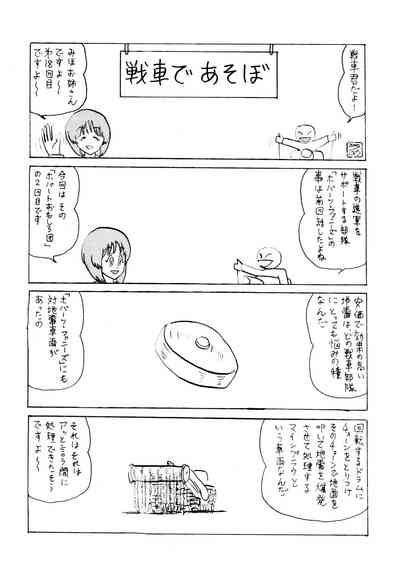 戦車であそぼ
戦車君だよ!
みほお姉さん
ですよ〜
第18回目
ですよ〜
戦車の進軍を
サポートする部隊
「ホバーツ・ファニーズ」の
事は前回話したよね
今回は その
「ホバートおもしろ団」
の2回目です
安価で効果の高い
地雷は、どの戦車部隊
にとっても悩みの種
なんだ
「ホバーツ・ファニーズ」にも
対地雷車両が
あったの
回転するドラムに
チェーンをとりつけ
そのチェーンで地面を
叩いて地雷を爆発
させて処理する
マインプラウと
いう車両なんだ
それは それは
アッという間に
処理できたそう
ですよ〜